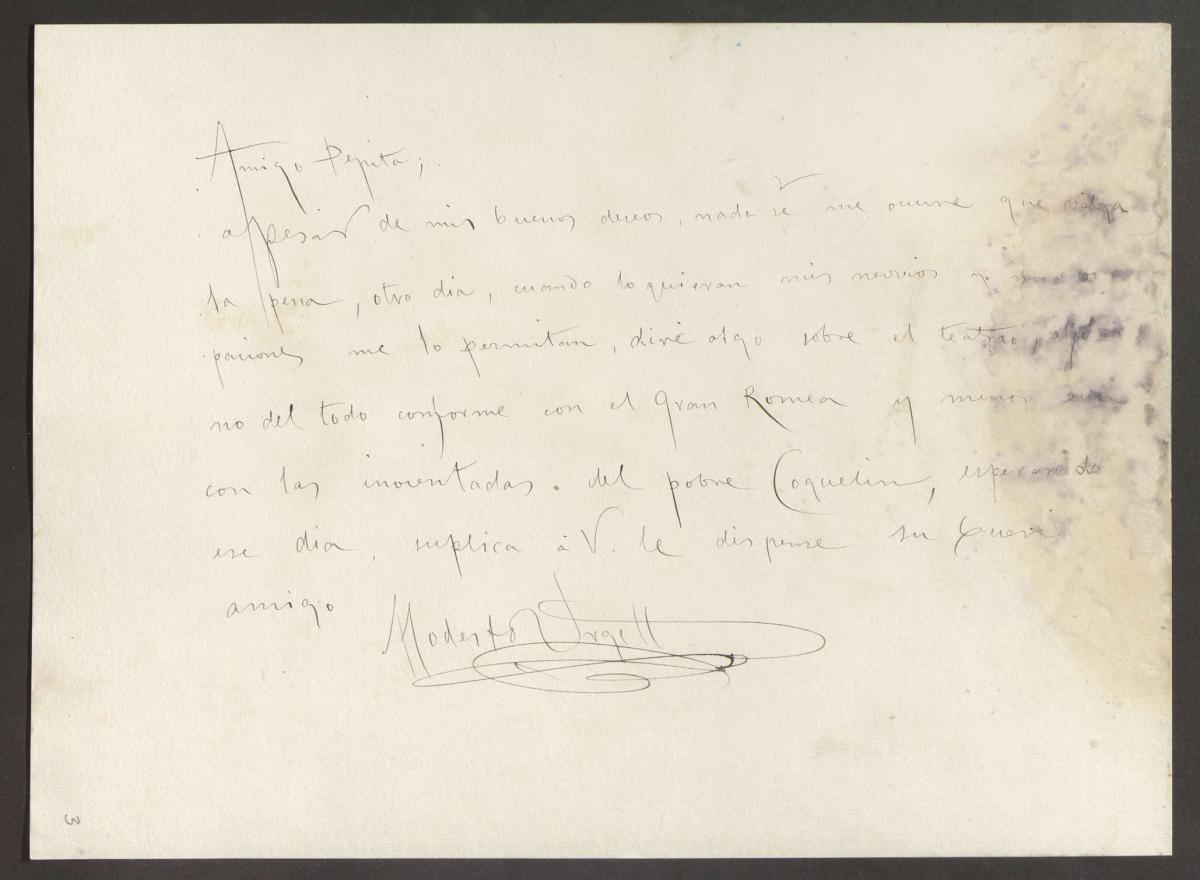 Amigo Pepita;
appesar de mis buenos deseos, nada sé me ocurre que valga
la pena, otro dia, cuando lo quieran mis nervios y
paciones me lo permitan, diré algo sobre el teatro, algo
no del todo conforme con el Gran Romea y menos aun
con las inventadas del pobre Coquelin, esperando
ese dia, suplica á V. le dispense su buen
amigo Modesto Urgell
3